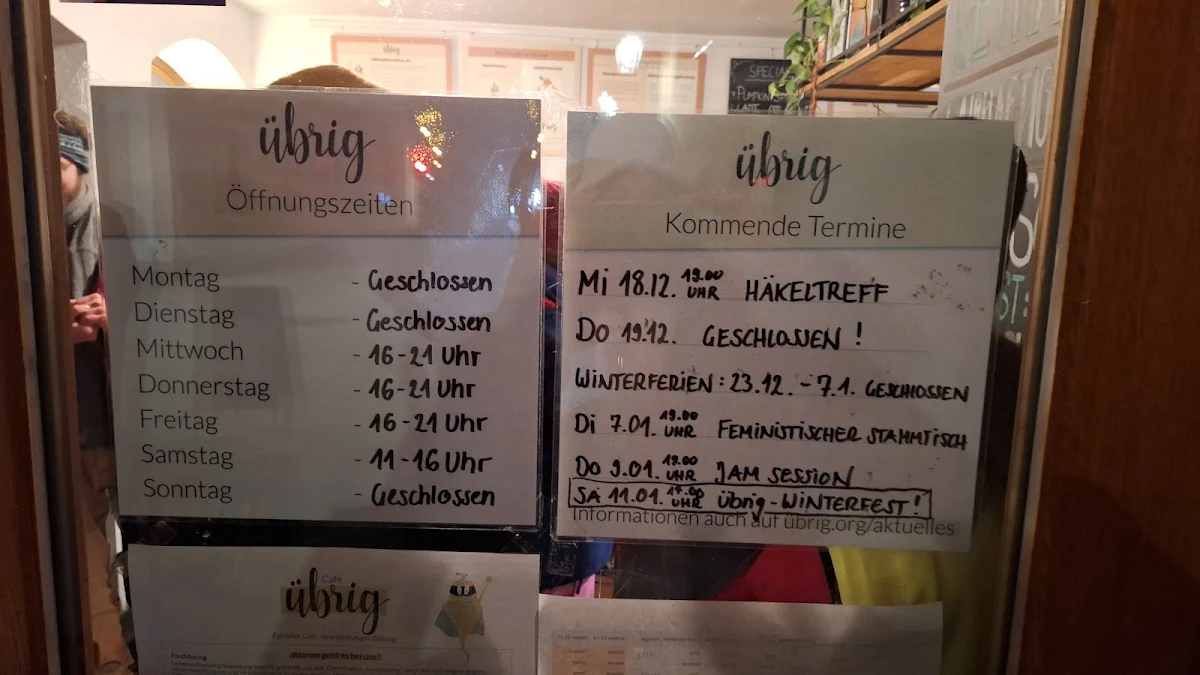 übrig
Öffnungszeiten
Montag - Geschlossen
Dienstag - Geschlossen
Mittwoch - 16-21 Uhr
Donnerstag - 16-21 Uhr
Freitag - 16-21 Uhr
Samstag - 11-16 Uhr
Sonntag - Geschlossen
übrig
Kommende Termine
Mi 18.12. 19.00 UHR HÄKELTREFF
DO 19.12. GESCHLOSSEN!
WINTERFERIEN: 23.12. - 7.1. GESCHLOSSEN
Di 7.01. 19.00 UHR FEMINISTISCHER STAMMTISCH
DO 9.01. 19.00 UHR JAM SESSION
SA 11.01. UHR übrig-WINTERFEST!
Informationen auch auf übrig.org/aktuelles
SPECIAL
Café
übrig
Worum geht es bei uns?
Foodsharing